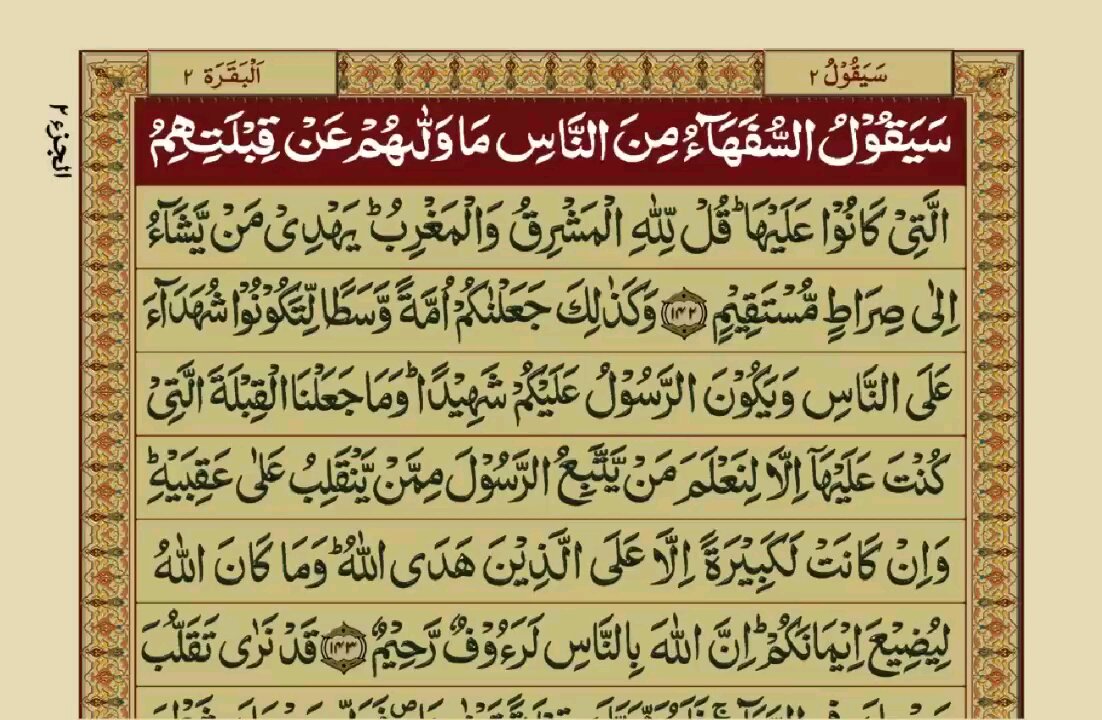 سَيَقُوْلُ ٢
اَلْبَقَرَة ٢
الجزء ٢
سَيَقُوْلُ السُّفَهَآءُ مِنَ النَّاسِ مَا وَلّٰىهُمْ عَنْ قِبْلَتِهِمُ
الَّتِيْ كَانُوْا عَلَيْهَا ؕ قُلْ لِّلّٰهِ الْمَشْرِقُ وَالْمَغْرِبُ ؕ يَهْدِيْ مَنْ يَّشَآءُ
اِلٰى صِرَاطٍ مُّسْتَقِيْمٍ ﴿١٤٢﴾ وَكَذٰلِكَ جَعَلْنٰكُمْ اُمَّةً وَّسَطًا لِّتَكُوْنُوْا شُهَدَآءَ
عَلَى النَّاسِ وَيَكُوْنَ الرَّسُوْلُ عَلَيْكُمْ شَهِيْدًا ؕ وَمَا جَعَلْنَا الْقِبْلَةَ الَّتِيْ
كُنْتَ عَلَيْهَآ اِلَّا لِنَعْلَمَ مَنْ يَّتَّبِعُ الرَّسُوْلَ مِمَّنْ يَّنْقَلِبُ عَلٰى عَقِبَيْهِ ؕ
وَاِنْ كَانَتْ لَكَبِيْرَةً اِلَّا عَلَى الَّذِيْنَ هَدَى اللّٰهُ ؕ وَمَا كَانَ اللّٰهُ
لِيُضِيْعَ اِيْمَانَكُمْ ؕ اِنَّ اللّٰهَ بِالنَّاسِ لَرَءُوْفٌ رَّحِيْمٌ ﴿١٤٣﴾ قَدْ نَرٰى تَقَلُّبَ